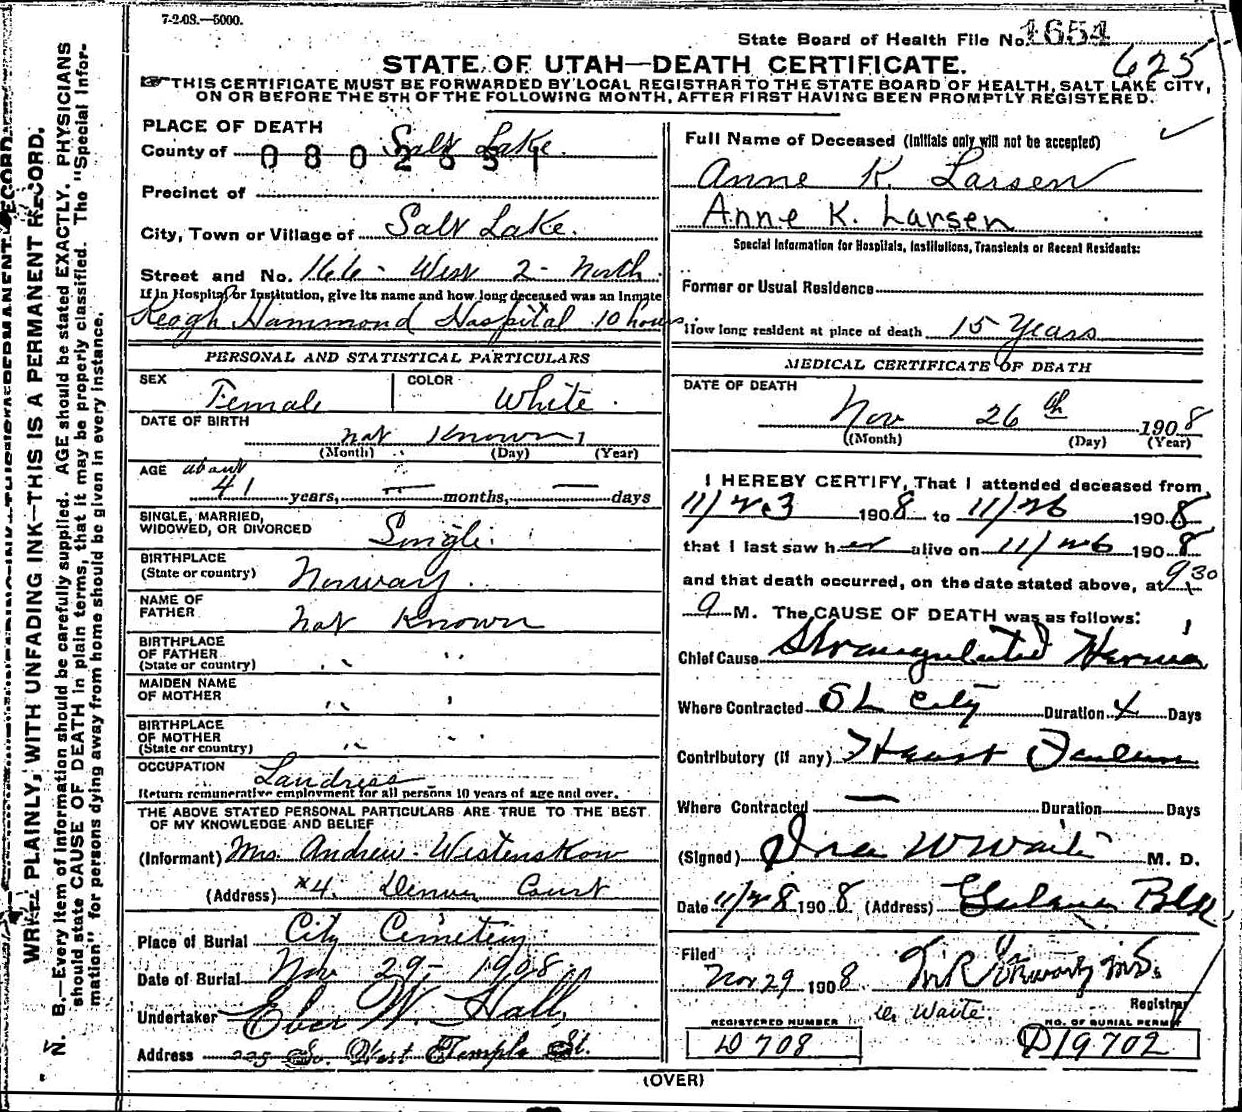 7-2-08.—5000.
State Board of Health File No. 1654
625
STATE OF UTAH—DEATH CERTIFICATE.
THIS CERTIFICATE MUST BE FORWARDED BY LOCAL REGISTRAR TO THE STATE BOARD OF HEALTH, SALT LAKE CITY,
ON OR BEFORE THE 5TH OF THE FOLLOWING MONTH, AFTER FIRST HAVING BEEN PROMPTLY REGISTERED.
WRITE PLAINLY, WITH UNFADING INK—THIS IS A PERMANENT RECORD.
N. B.—Every item of information should be carefully supplied. AGE should be stated EXACTLY. PHYSICIANS
should state CAUSE OF DEATH in plain terms, that it may be properly classified. The "Special Infor-
mation" for persons dying away from home should be given in every instance.
PLACE OF DEATH
County of Salt Lake
0802651
Precinct of
City, Town or Village of Salt Lake.
Street and No. 166 - West 2 - North
If in Hospital or Institution, give its name and how long deceased was an Inmate
Keogh Hammond Hospital 10 hours
PERSONAL AND STATISTICAL PARTICULARS
SEX Female COLOR White.
DATE OF BIRTH not Known
(Month) (Day) (Year)
AGE about 41 years, — months, — days
SINGLE, MARRIED,
WIDOWED, OR DIVORCED Single.
BIRTHPLACE
(State or country) Norway.
NAME OF
FATHER not Known
BIRTHPLACE
OF FATHER
(State or country) " "
MAIDEN NAME
OF MOTHER " "
BIRTHPLACE
OF MOTHER
(State or country) " "
OCCUPATION Landress
Return remunerative employment for all persons 10 years of age and over.
THE ABOVE STATED PERSONAL PARTICULARS ARE TRUE TO THE BEST
OF MY KNOWLEDGE AND BELIEF
(Informant) Mrs. Andrew Westenskow
(Address) #4. Denver Court
Place of Burial City Cemetery
Date of Burial Nov 29- 1908
Undertaker Eber W. Hall,
Address So. West Temple St.
Full Name of Deceased (Initials only will not be accepted)
Anne K. Larsen
Anne K. Larsen
Special Information for Hospitals, Institutions, Transients or Recent Residents:
Former or Usual Residence
How long resident at place of death 15 Years
MEDICAL CERTIFICATE OF DEATH
DATE OF DEATH
Nov 26th 1908
(Month) (Day) (Year)
I HEREBY CERTIFY, That I attended deceased from
11/23 1908 to 11/26 1908
that I last saw her alive on 11/26 1908
and that death occurred, on the date stated above, at 9 30
a M. The CAUSE OF DEATH was as follows:
Chief Cause Strangulated Hernia
Where Contracted S L City Duration 4 Days
Contributory (if any) Heart Failure
Where Contracted — Duration Days
(Signed) Ira W Waite M. D.
Date 11/28 1908 (Address) Blk
Filed
Nov 29 1908
Registrar
W. Waite.
REGISTERED NUMBER
D 708
NO. OF BURIAL PERMIT
D19702
(OVER)